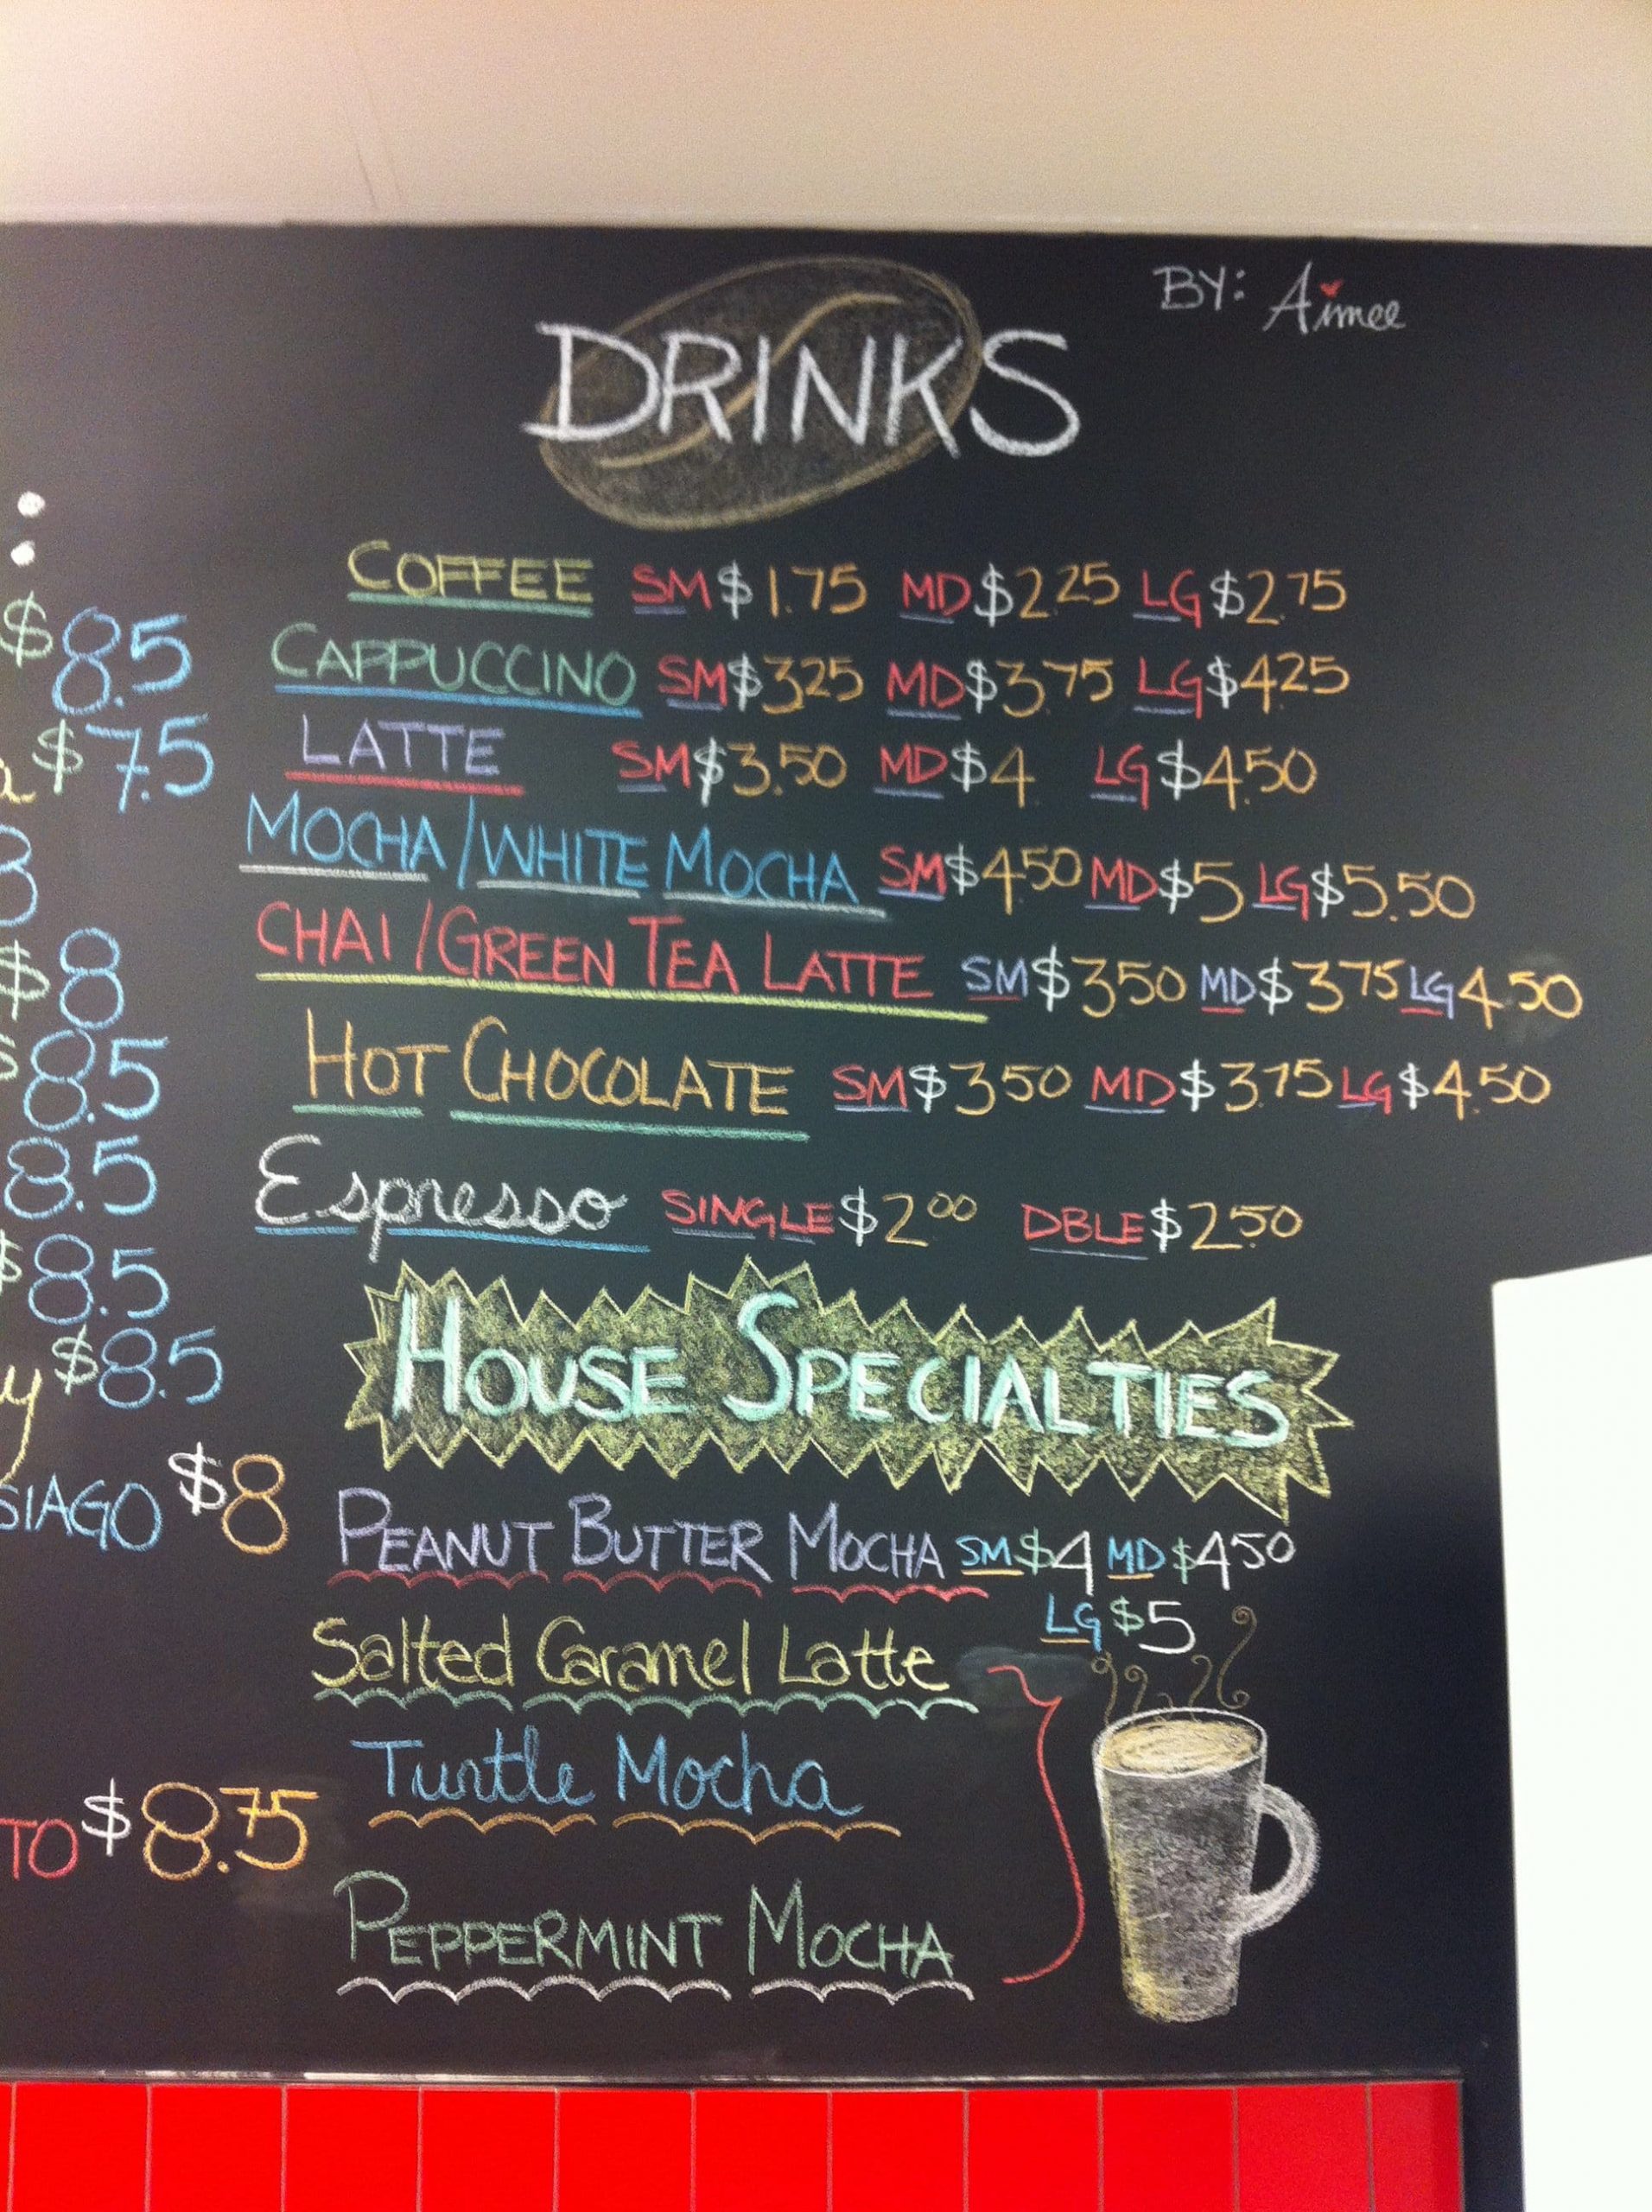 BY: Aimee
DRINKS
COFFEE SM $1.75 MD $2.25 LG $2.75
CAPPUCCINO SM $3.25 MD $3.75 LG $4.25
LATTE SM $3.50 MD $4 LG $4.50
MOCHA/WHITE MOCHA SM $4.50 MD $5 LG $5.50
CHAI/GREEN TEA LATTE SM $3.50 MD $3.75 LG 4.50
HOT CHOCOLATE SM $3.50 MD $3.75 LG $4.50
Espresso SINGLE $2.00 DBLE $2.50
HOUSE SPECIALTIES
PEANUT BUTTER MOCHA SM $4 MD $4.50
LG $5
Salted Caramel Latte
Turtle Mocha
PEPPERMINT MOCHA
:
$8.5
a $7.5
3
$8
$8.5
8.5
$8.5
y $8.5
SIAGO $8
TO $8.75